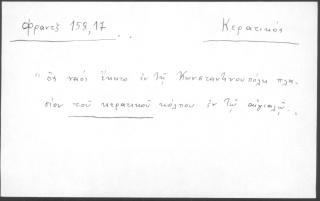 Φραντζ 158,17 Κερατικός
"ὃς ναὸς ἔκειτο ἐν τῇ Κωνσταντινουπόλει πλη-
σίον τοῦ κερατικοῦ κόλπου ἐν τῷ αἰγιαλῷ.